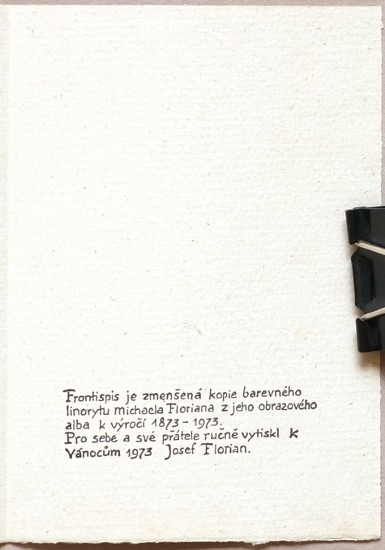 Frontispis je zmenšená kopie barevného
linorytu michaela Floriana z jeho obrazového
alba k výročí 1873-1973.
Pro sebe a své přátele ručně vytiskl k
Vánocům 1973 Josef Florian.